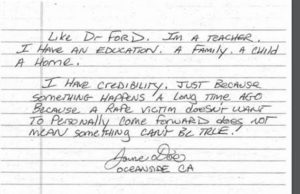 Like Dr Ford. I'm a teacher.
I have an education. A family. A child
A home.
I have credibility. Just because
something happens a long time ago
because a rape victim doesn't want
to personally come forward does not
mean something can't be true!
Jane Doe
Oceanside CA